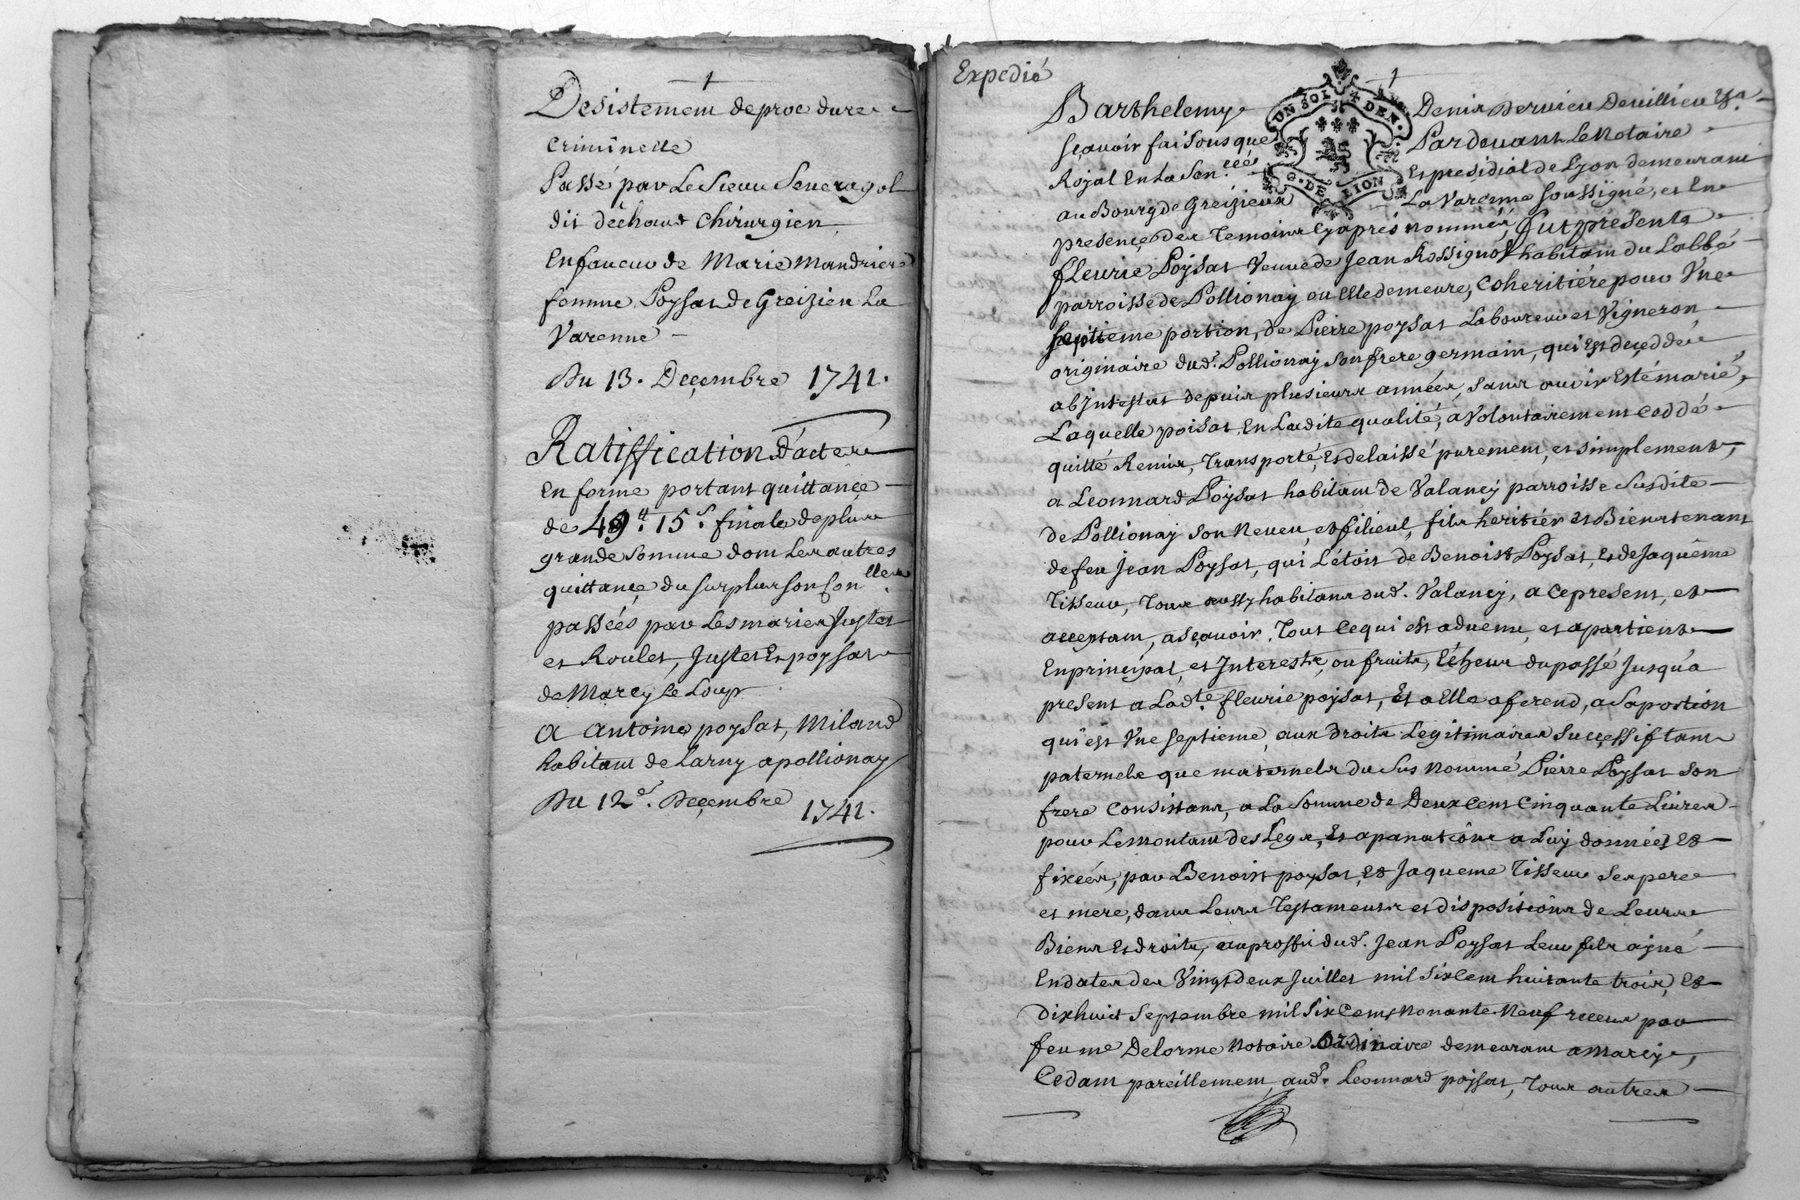 Desistement de procedure
Criminelle
Passé par Le Sieur
dit déchaut Chirurgien
En faveur de Marie Mandrier
femme Poysat de Greizieu La
Varenne
Du 13. Deçembre 1741.
Ratiffication d'actes
En forme portant quittançe
de 49 15.s finale de plus
grande Somme dont Les autres
quittançe du surplus son
passées par Les mariés Justet
et Roulet, Justet Et poysat
de Marcy Le Loup
A Antoine poysat, Miland
habitant de Larny a pollionay
Du 12e. Deçembre
1741.
Expedié
Barthelemy Denis Dervieu Devillieu
sçavoir faisons que Pardevant Le Notaire
UN SOL 4 DEN.
G. DE LION
Royal En La Sen.ceés Et presidial de Lyon demeurant
au Bourg de Greizieux La Varenne Soussigné, et En
presençe des Temoins Cyaprés nommés, fut presente
fleurie Poÿsat Veuve de Jean Rossignol habitant du Labbé
parroisse de Pollionaÿ ou Elle demeure, Coheritiére pour Vne
septieme portion, de Pierre poysat Laboureur et Vigneron
originaire dud. Pollionaÿ son frere germain, qui Est deçeddé
abJntestat depuis plusieurs années, sans avoir Esté marié,
Laquelle poisat En Ladite qualité, a Volontairement Ceddé
quitté Remis, Transporté, Et delaissé purement, et simplement,
a Leonnard Poÿsat habitant de Valancÿ parroisse Susdite
de Pollionaÿ son Neveu, et filieul, fils heritier et Bienstenant
de feu Jean Poysat, qui L'étoit de Benoist Poysat, et de Jaquême
Tisseur, Tous aussy habitans dud. Valancÿ, a Ce present, et
acceptant, a sçavoir, Tout Ce qui est aduenu, et apartient
En principal, et Interests, ou fruits, Echeus du passé Jusqu'a
present a Lad.te fleurie poÿsat, Et a Elle aferend, a Sa portion
qui est Vne septieme, aux droits Legitimaires Sucçessifs tant
paternels que maternels du Sus nommé Pierre Poysat son
frere Consistant, a La Somme de Deux Cent Cinquante Livres
pour Le montant des Legs, Et apanations a Luÿ données Et
fixées, par Benoist poysat, Et Jaqueme Tisseur Ses pere
et mere, dans Leurs Testaments et dispositions de Leurs
Biens Et droits, au proffit dud. Jean Poysat Leur fils ayné
En dates des Vingt deux Juillet mil Six Cent huitante trois, Et
dix huit Septembre mil Six Cent Nonante Neuf receus par
feu me Delorme Notaire ordinaire demeurant a Marcÿ,
Cedant pareillement, aud. Leonnard poÿsat, Tous autres